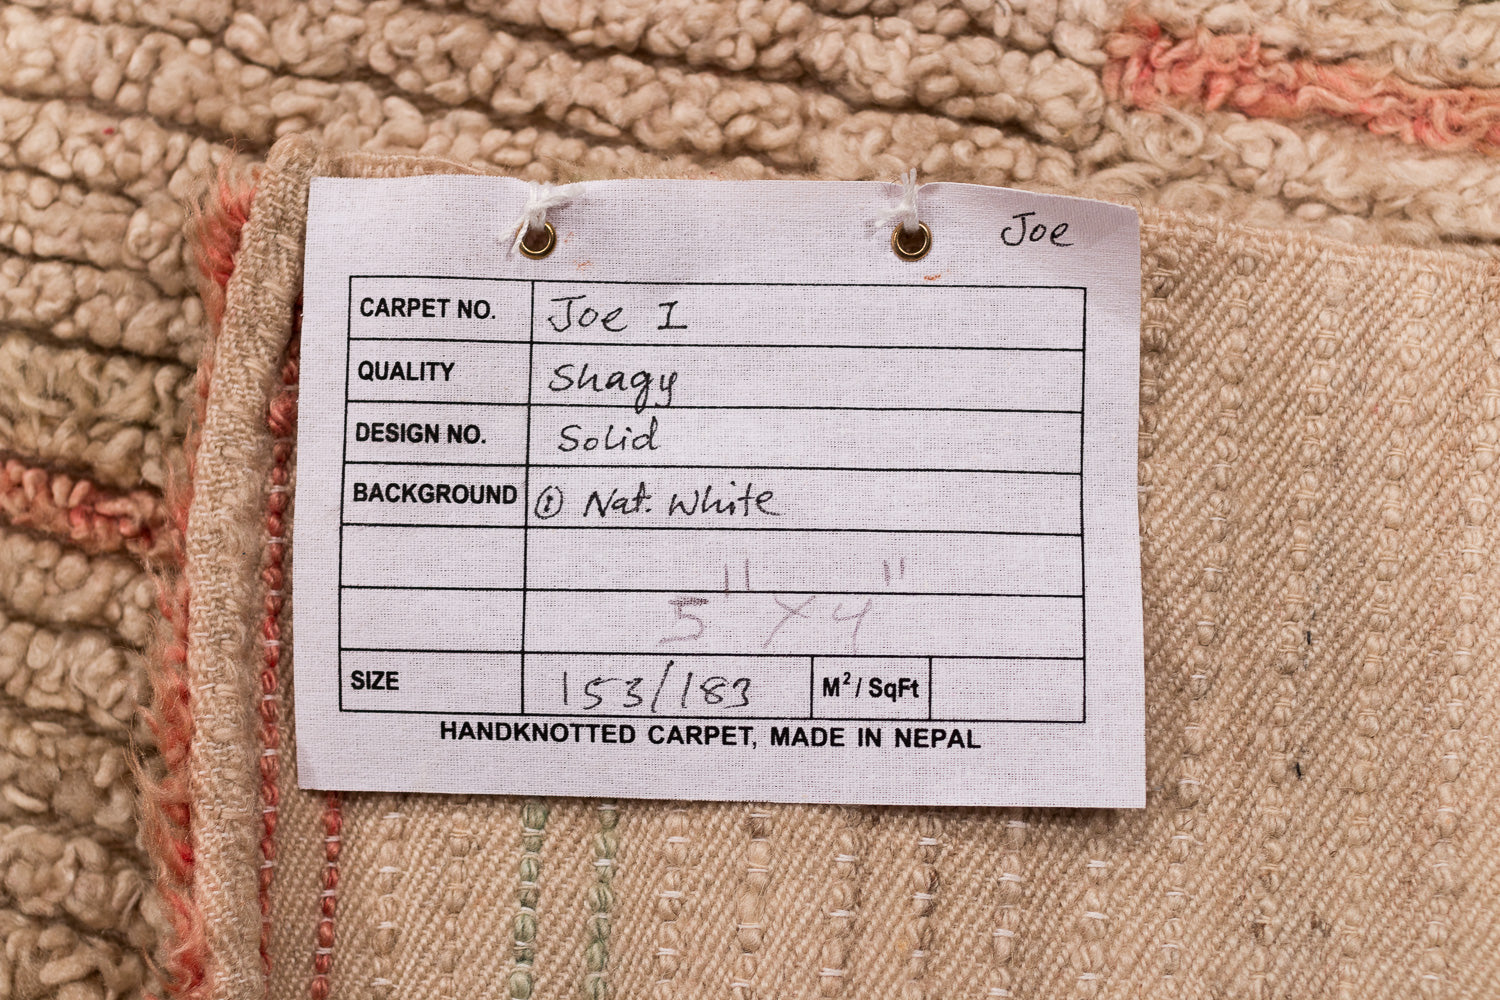 Joe
CARPET NO. Joe I
QUALITY Shagy
DESIGN NO. Solid
BACKGROUND ① Nat. White
5" x 4"
SIZE 153/183 M²/ SqFt
HANDKNOTTED CARPET, MADE IN NEPAL